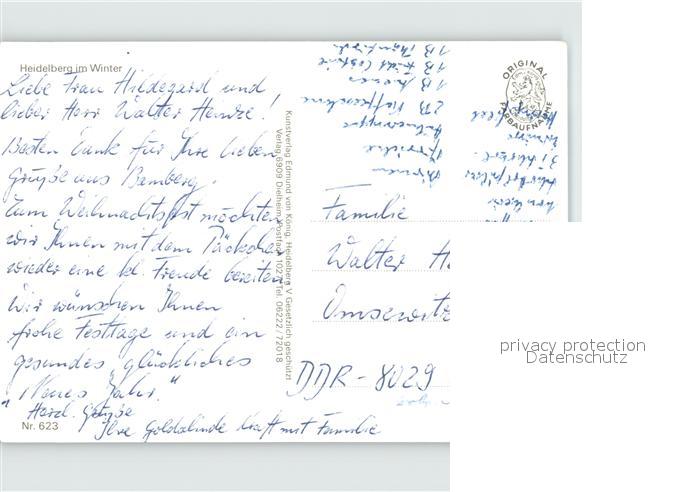 Heidelberg im Winter
Liebe Frau Hildegard und
lieber Herr Walter Henze!
Besten Dank für Ihre lieben
Grüße aus Bamberg.
Zum Weihnachtsfest möchten
wir Ihnen mit dem Päckchen
wieder eine kl. Freude bereiten
Wir wünschen Ihnen
frohe Festtage und ein
gesundes, glückliches
"Neues Jahr."
Herzl. Grüße
Ihre Goldalinde Kraft mit Familie
Nr. 623
Kunstverlag Edmund von König, Heidelberg V Gesetzlich geschützt
Verlag 6909 Dielheim, Postfach 1027, Tel. 06222 / 72018
ORIGINAL
FARBAUFNAHME
Familie
Walter H
Omsewitz
DDR-8029
privacy protection
Datenschutz